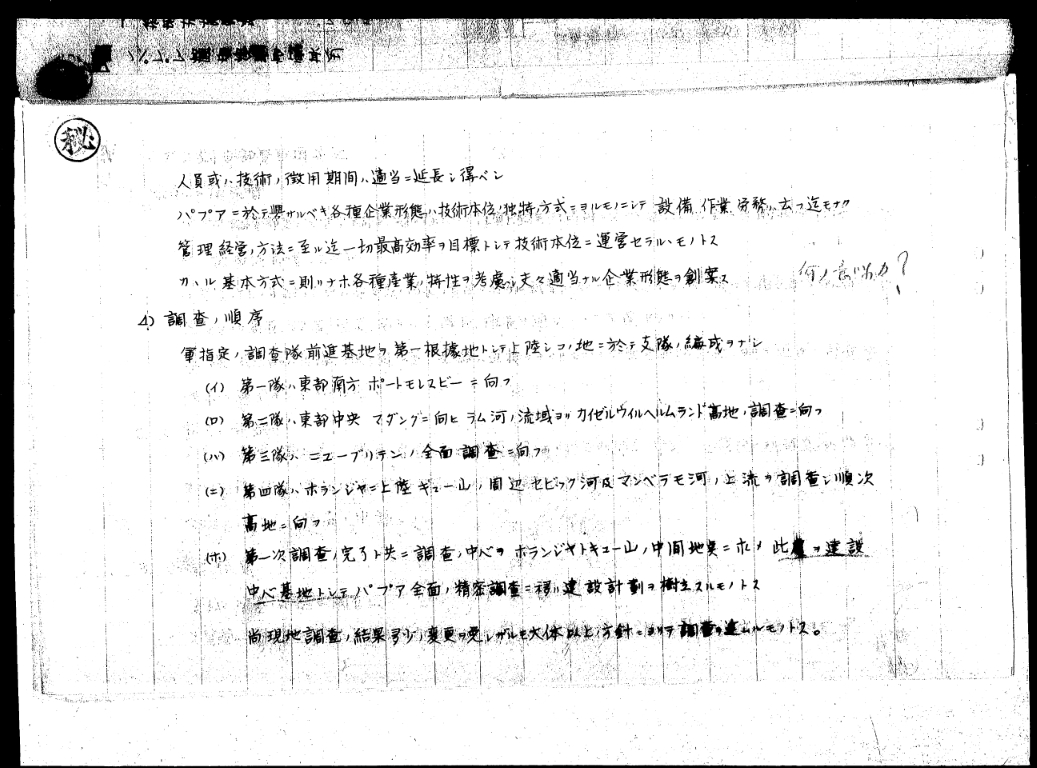 パプア
秘
人員或ハ技術ノ徴用期間ハ適当ニ延長シ得ベシ
パプアニ於テ興サルベキ各種企業形態ハ技術本位ノ独特方式ニヨルモノニシテ設備 作業 労務ハ云フ迄モナク
管理経営ノ方法ニ至ル迄一切最高効率ヲ目標トシテ技術本位ニ運営セラルヽモノトス
カヽル基本方式ニ則リナホ各種産業ノ特性ヲ考慮シ夫々適当ナル企業形態ヲ創案ス
何ノ意味カ?
4) 調査ノ順序
軍指定ノ調査隊前進基地ヲ第一根據地トシテ上陸シコノ地ニ於テ支隊ノ編成ヲナシ
(イ) 第一隊ハ東部南方 ポートモレスビーニ向フ
(ロ) 第二隊ハ東部中央 マダングニ向ヒ ラム河ノ流域ヨリ カイゼルウイルヘルムランド高地ノ調査ニ向フ
(ハ) 第三隊ハ ニューブリテンノ全面調査ニ向フ
(ニ) 第四隊ハ ホランジヤニ上陸 ギュー山ノ周辺 セピック河及マンベラモ河ノ上流ヲ調査シ順次
高地ニ向フ
(ホ) 第一次調査ノ完了ト共ニ調査ノ中心ヲ ホランジヤトキュー山ノ中間地点ニ求メ 此処ヲ建設
中心基地トシテ パプア全面ノ精密調査ニ移リ建設計劃ヲ樹立スルモノトス
尚現地調査ノ結果多少ノ変更ヲ要シサルモ大体以上ノ方針ニヨリテ調査ヲ進ムルモノトス。